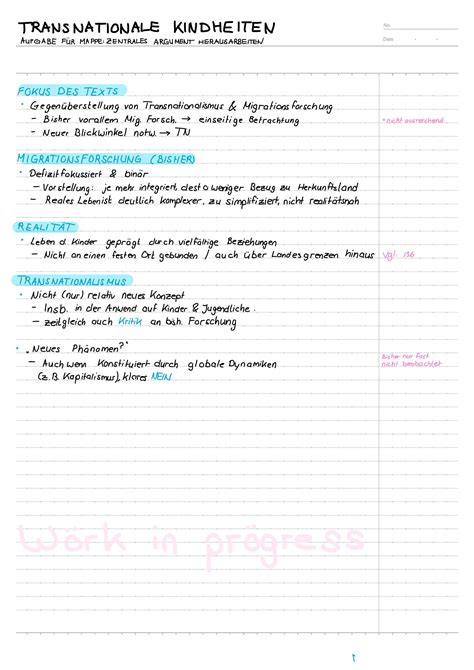 TRANSNATIONALE KINDHEITEN
No.
AUFGABE FÜR MAPPE: ZENTRALES ARGUMENT HERAUSARBEITEN
Date - -
FOKUS DES TEXTS
• Gegenüberstellung von Transnationalismus & Migrationsforschung
– Bisher vorallem Mig. Forsch. → einseitige Betrachtung
• nicht ausreichend
– Neuer Blickwinkel notw. → TN
MIGRATIONSFORSCHUNG (BISHER)
• Defizitfokussiert & binär
– Vorstellung: je mehr integriert, desto weniger Bezug zu Herkunftsland
– Reales Leben ist deutlich komplexer, zu simplifiziert, nicht realitätsnah
REALITÄT
• Leben d. Kinder geprägt durch vielfältige Beziehungen
– Nicht an einen festen Ort gebunden / auch über Landesgrenzen hinaus
Vgl. 136
TRANSNATIONALISMUS
• Nicht (nur) relativ neues Konzept
– Insb. in der Anwend auf Kinder & Jugendliche
– zeitgleich auch Kritik an bish. Forschung
• „Neues Phänomen?"
Bisher nur fast
nicht beobachtet
– Auch wenn Konstituiert durch globale Dynamiken
(z.B. Kapitalismus), klares NEIN
Work in prögress